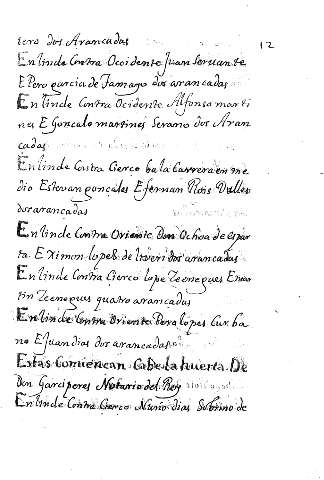 tero dos Arancadas
12
En linde Contra Occidente Juan Seruante
E Pero garcia de Tamago dos arancadas
En linde Contra Ocidente Alfonso marti
nes E Gonçalo martines Serano dos Aran
cadas
En linde Contra Cierco ba la Carrera en me
dio Estevan gonçales E fernan Rois Dulles
dos arancadas
En linde Contra Oriente Don Ochoa de espar
ta E Ximon lopes de liveri dos arancadas
En linde Contra Cierco lope Zeenegues E mar
tin Zeenegues quatro arancadas
En linde Contra Oriente Pero lopes Curba
no E Juan dias dos arancadas
Estas Comiencan Cabe la huerta De
Don Garci peres Notario del Rey
En linde Contra Cierco Nunio dias Sobrino de